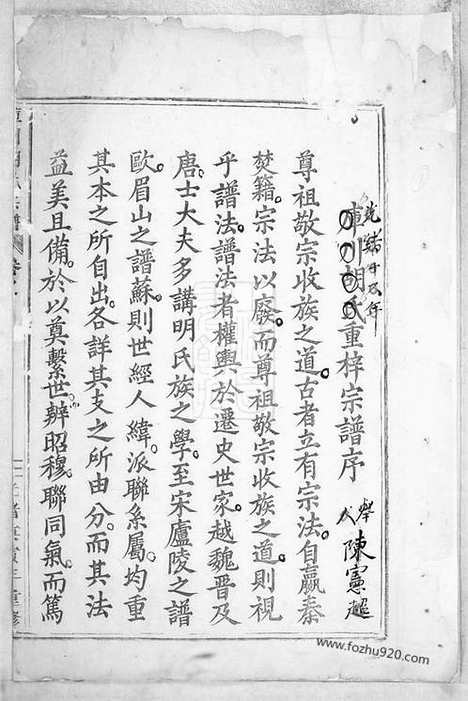 庫川胡氏重梓宗譜序
光緒十五年
舉人陳憲超
尊祖敬宗收族之道古者立有宗法自嬴秦
焚籍宗法以廢而尊祖敬宗收族之道則視
乎譜法譜法者權輿於遷史世家越魏晉及
唐士大夫多講明氏族之學至宋廬陵之譜
歐眉山之譜蘇則世經人緯派聯系屬均重
其本之所自出各詳其支之所由分而其法
益美且備於以奠繫世辨昭穆聯同氣而篤
www.fozhu920.com